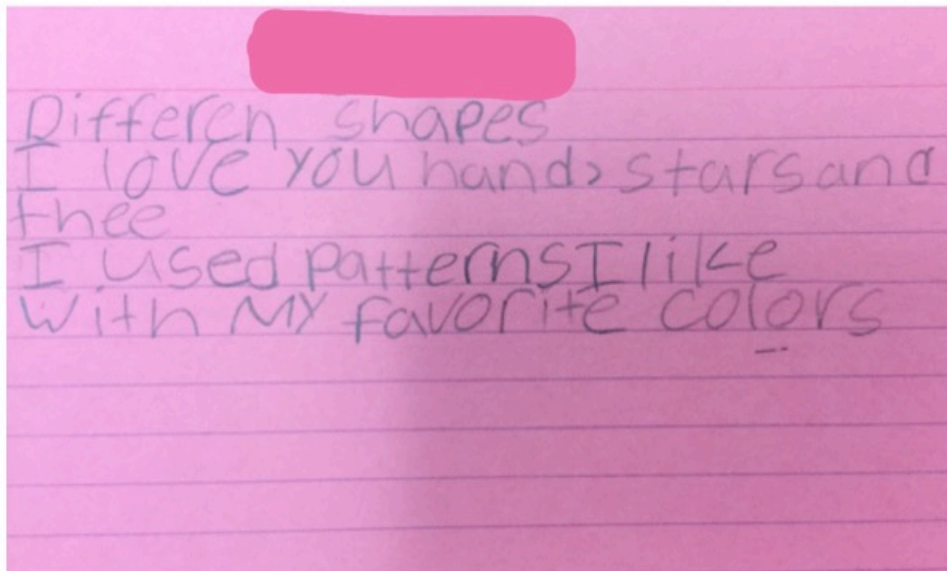 Differen shapes
I love you hand, stars and
thee
I used patterns I like
With My favorite colors